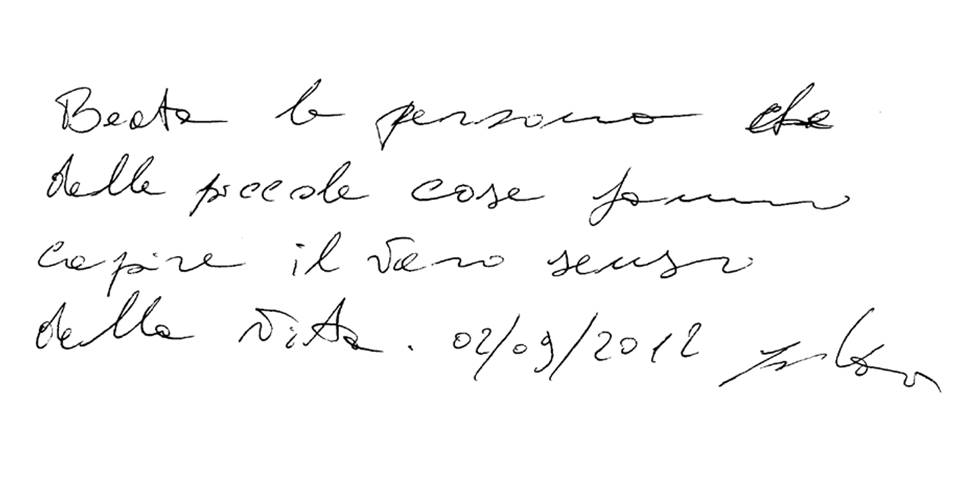 Beata la persona che
dalle piccole cose sanno
capire il vero senso
della vita. 02/09/2012